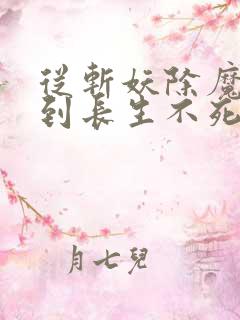 從斬妖除魔
到長生不死
月七兒